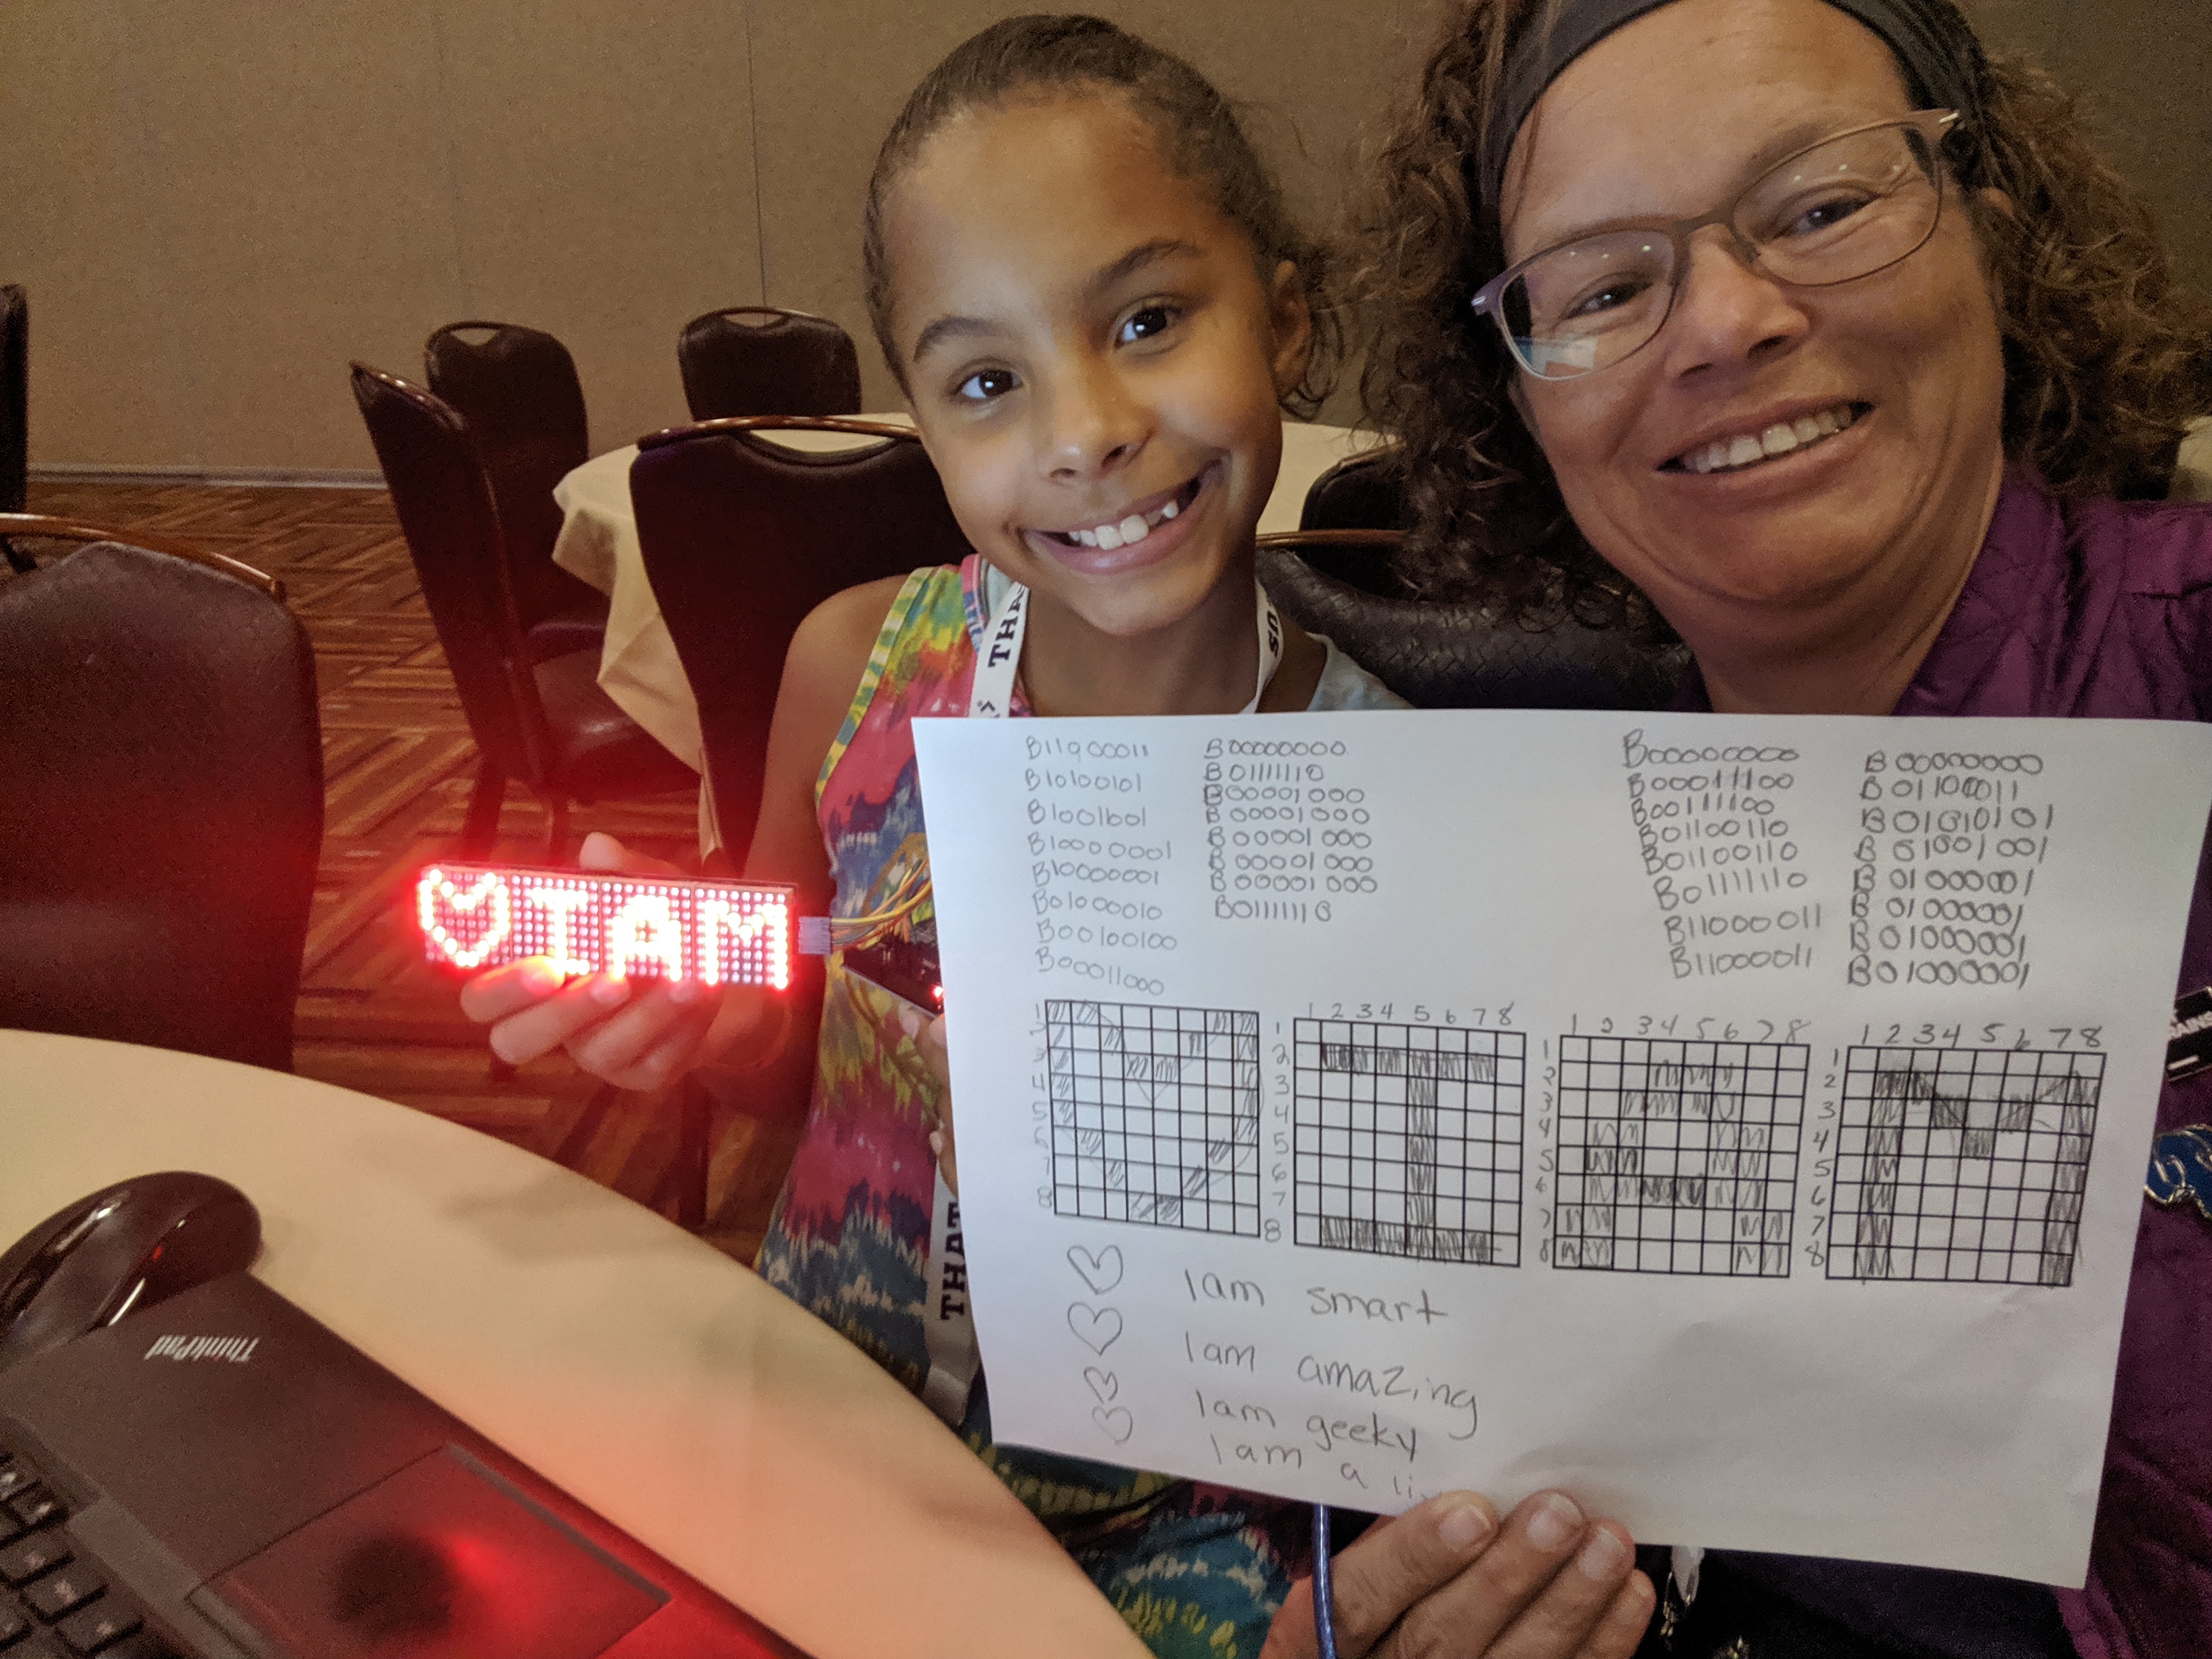 IAM
THAT
ThinkPad
B11000011
B10100101
B10011001
B10000001
B10000001
B01000010
B00100100
B00011000
B00000000
B01111110
B00001000
B00001000
B00001000
B00001000
B00001000
B01111110
B00000000
B00011100
B00111100
B01100110
B01100110
B01111110
B11000011
B11000011
B00000000
B01100011
B01010101
B01001001
B01000001
B01000001
B01000001
B01000001
1 2 3 4 5 6 7 8
1 2 3 4 5 6 7 8
1 2 3 4 5 6 7 8
1
2
3
4
5
6
7
8
1
2
3
4
5
6
7
8
1
2
3
4
5
6
7
8
1
2
3
4
5
6
7
8
I am smart
I am amazing
I am geeky
I am a